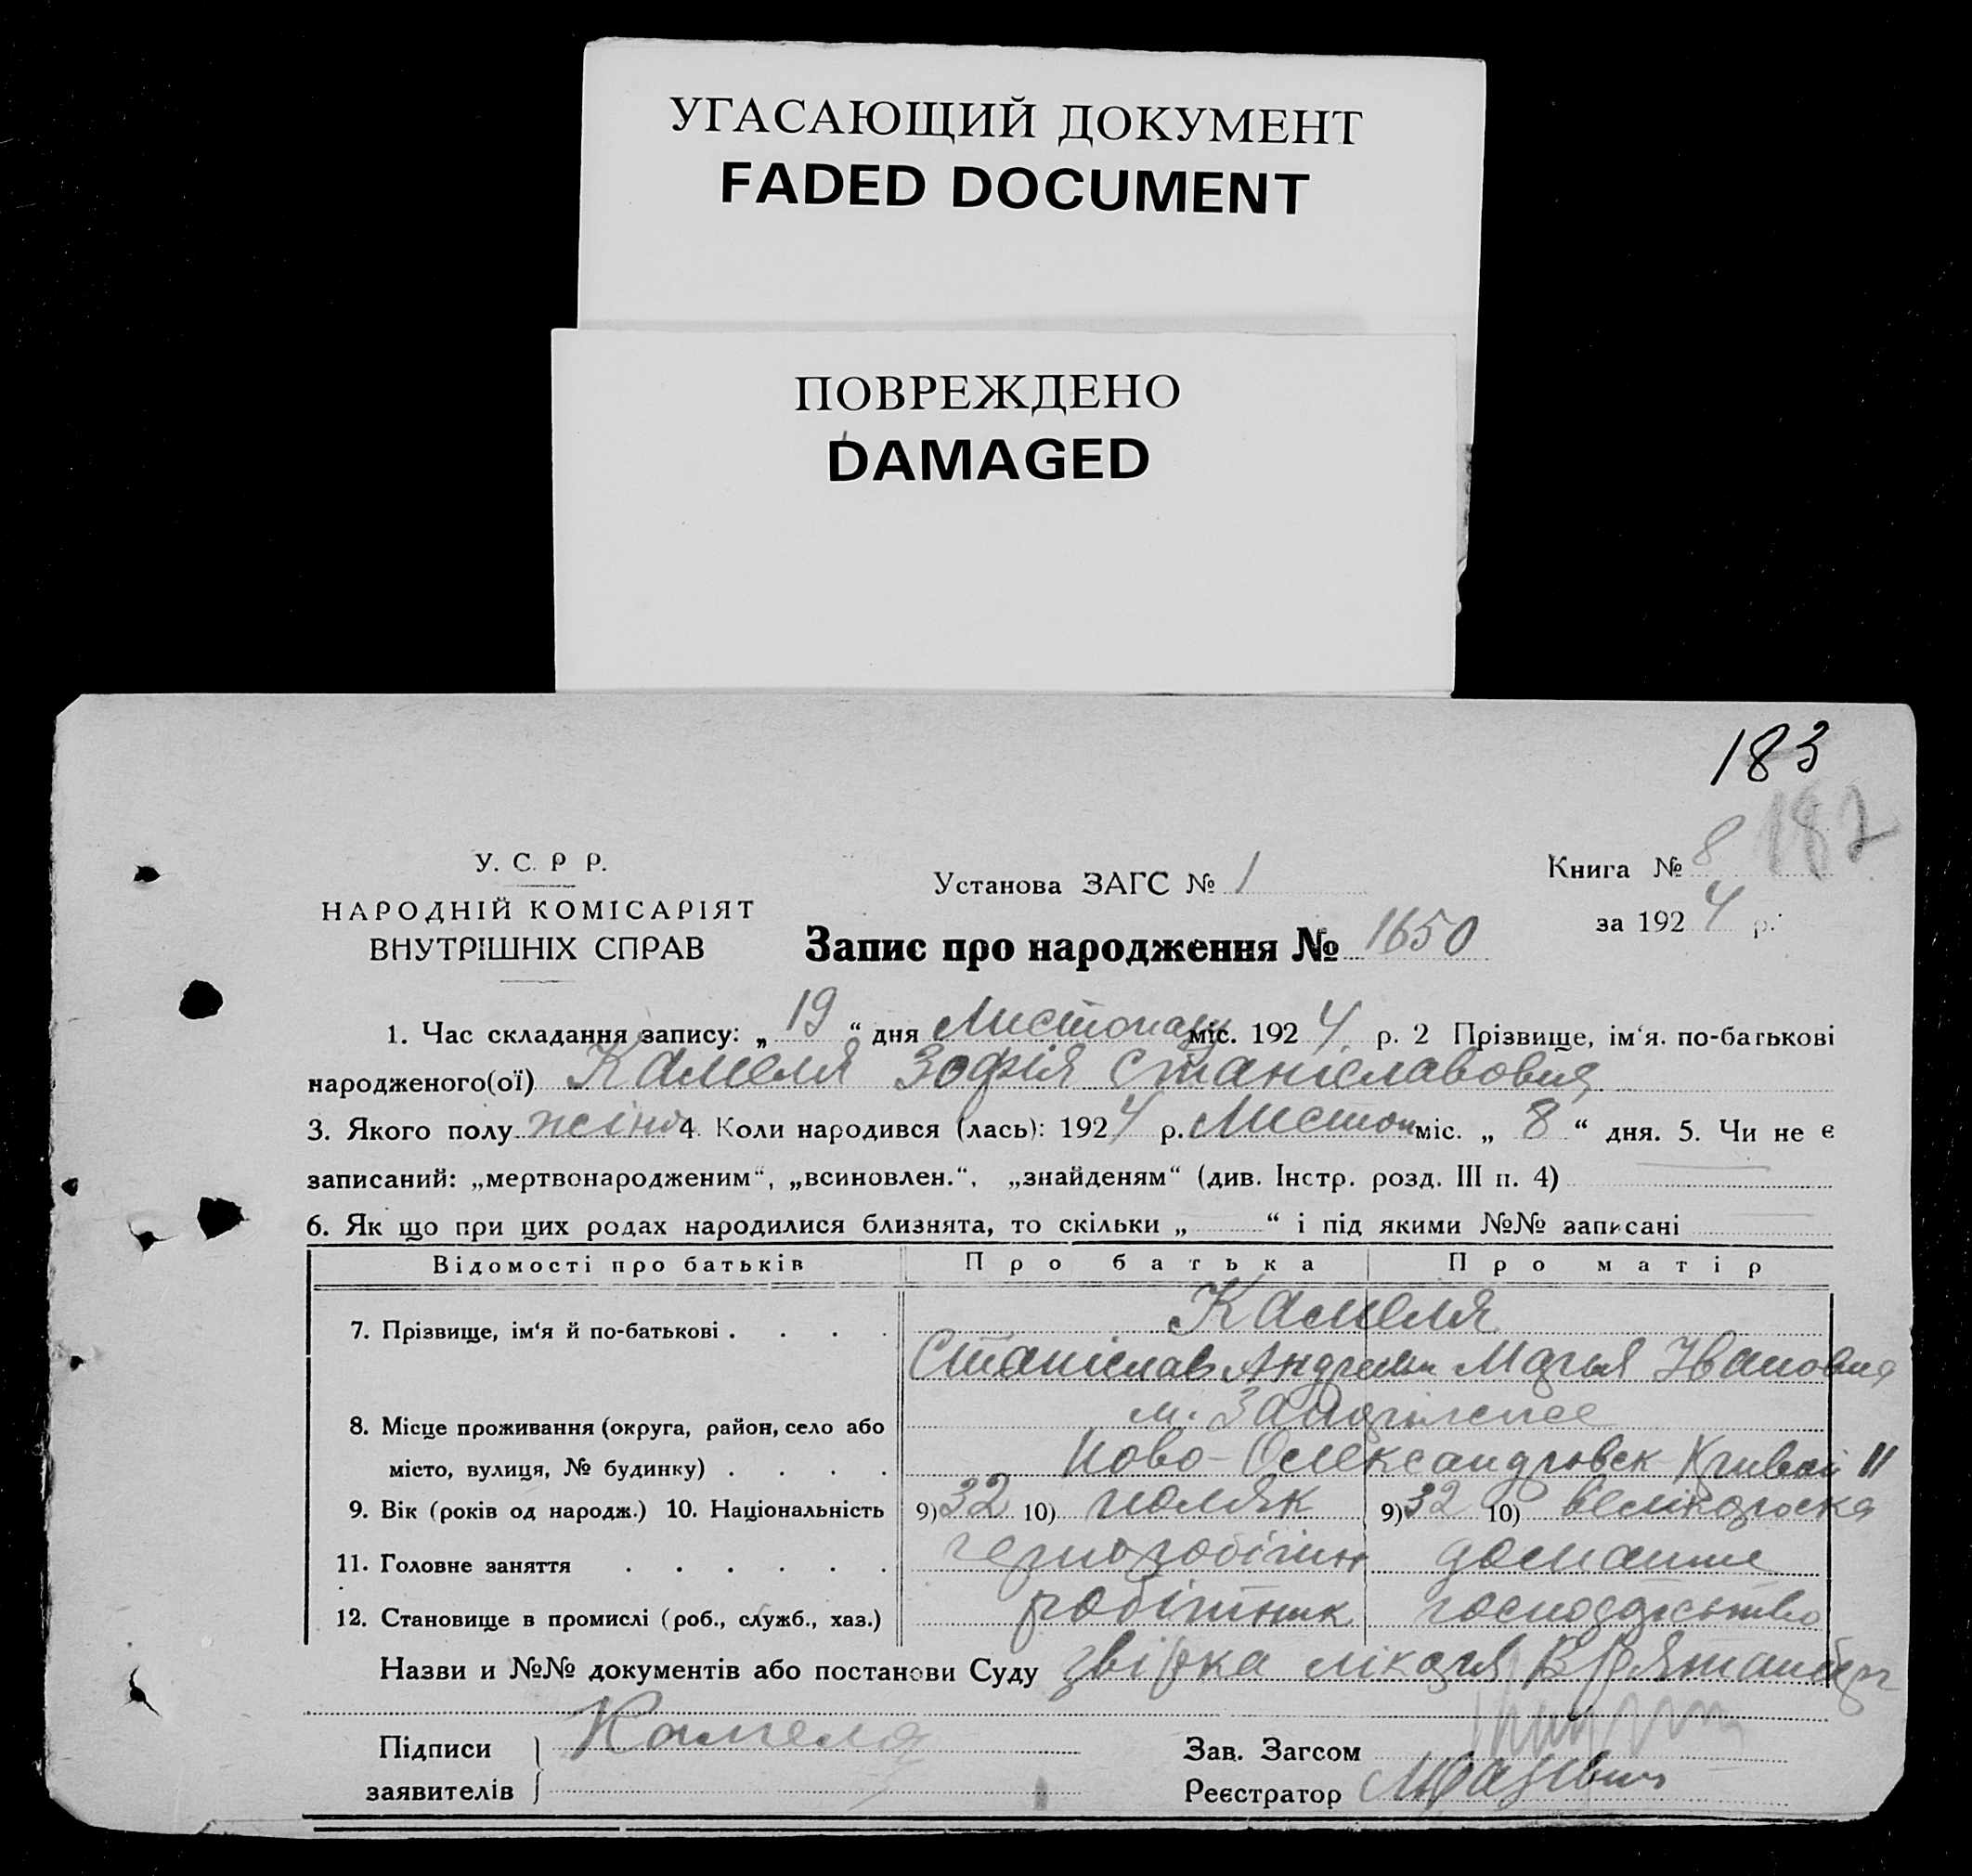 УГАСАЮЩИЙ ДОКУМЕНТ
FADED DOCUMENT
ПОВРЕЖДЕНО
DAMAGED
183
182
У. С. Р Р.
НАРОДНІЙ КОМІСАРІЯТ
ВНУТРІШНІХ СПРАВ
Установа ЗАГС № 1
Книга № 8
за 1924 р.
Запис про народження № 1650
1. Час складання запису: „ 19 “ дня Листопаду міс. 1924 р. 2 Прізвище, ім‘я. по-батькові
народженого(ої) Камеля Зофія Станіславовна
3. Якого полу жіноч 4. Коли народився (лась): 1924 р. Листоп міс. „ 8 “ дня. 5. Чи не є
записаний: „мертвонародженим“, „всиновлен.“, „знайденям“ (див. Інстр. розд. III п. 4)
6. Як що при цих родах народилися близнята, то скільки „ “ і під якими №№ записані
Відомості про батьків Про батька Про матір
7. Прізвище, ім‘я й по-батькові . . . . Камеля
Станіслав Андреев Марья Ивановна
8. Місце проживання (округа, район, село або м.
місто, вулиця, № будинку) . . . . Ново-Олександровск Кривой 11
9. Вік (років од народж.) 10. Національність 9) 32 10) поляк 9) 32 10) великороска
11. Головне заняття . . . . . . чернороботін домашне
12. Становище в промислі (роб., служб., хаз.) робітник господарство
Назви и №№ документів або постанови Суду лікаря
Підписи Камеля
заявителів
Зав. Загсом
Реєстратор